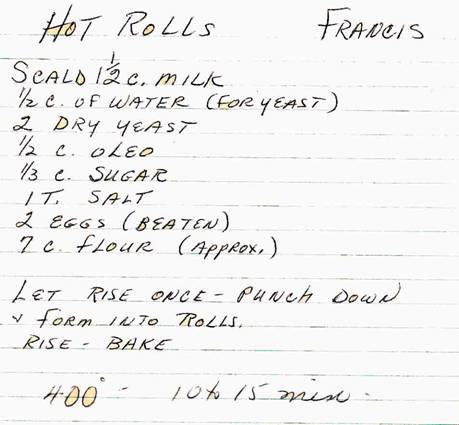 HOT ROLLS FRANCIS
SCALD 1 1/2 C. MILK
1/2 C. OF WATER (FOR YEAST)
2 DRY YEAST
1/2 C. OLEO
1/3 C. SUGAR
1 T. SALT
2 EGGS (BEATEN)
7 C. FLOUR (APPROX.)
LET RISE ONCE - PUNCH DOWN
& FORM INTO ROLLS.
RISE - BAKE
400° - 10 to 15 min.